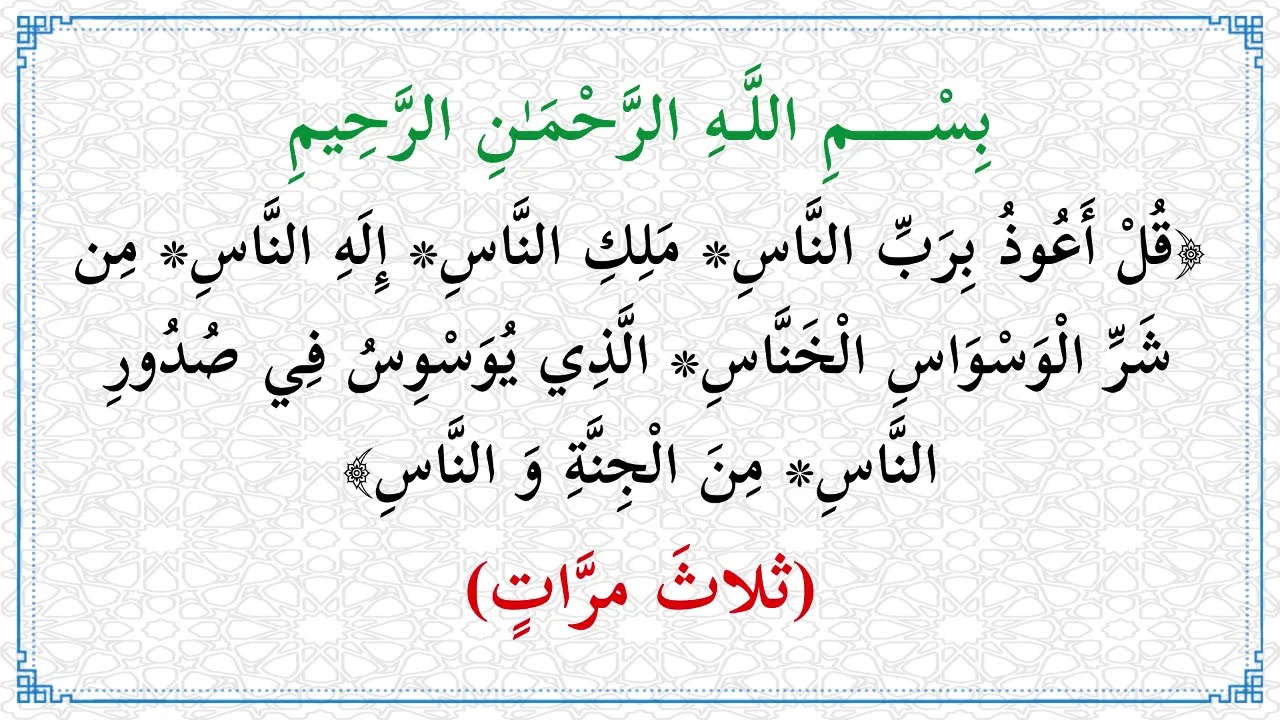 بِسْـــــمِ اللَّـهِ الرَّحْمَـٰنِ الرَّحِيمِ
﴿قُلْ أَعُوذُ بِرَبِّ النَّاسِ* مَلِكِ النَّاسِ* إِلَهِ النَّاسِ* مِن
شَرِّ الْوَسْوَاسِ الْخَنَّاسِ* الَّذِي يُوَسْوِسُ فِي صُدُورِ
النَّاسِ* مِنَ الْجِنَّةِ وَ النَّاسِ﴾
(ثلاثَ مرَّاتٍ)